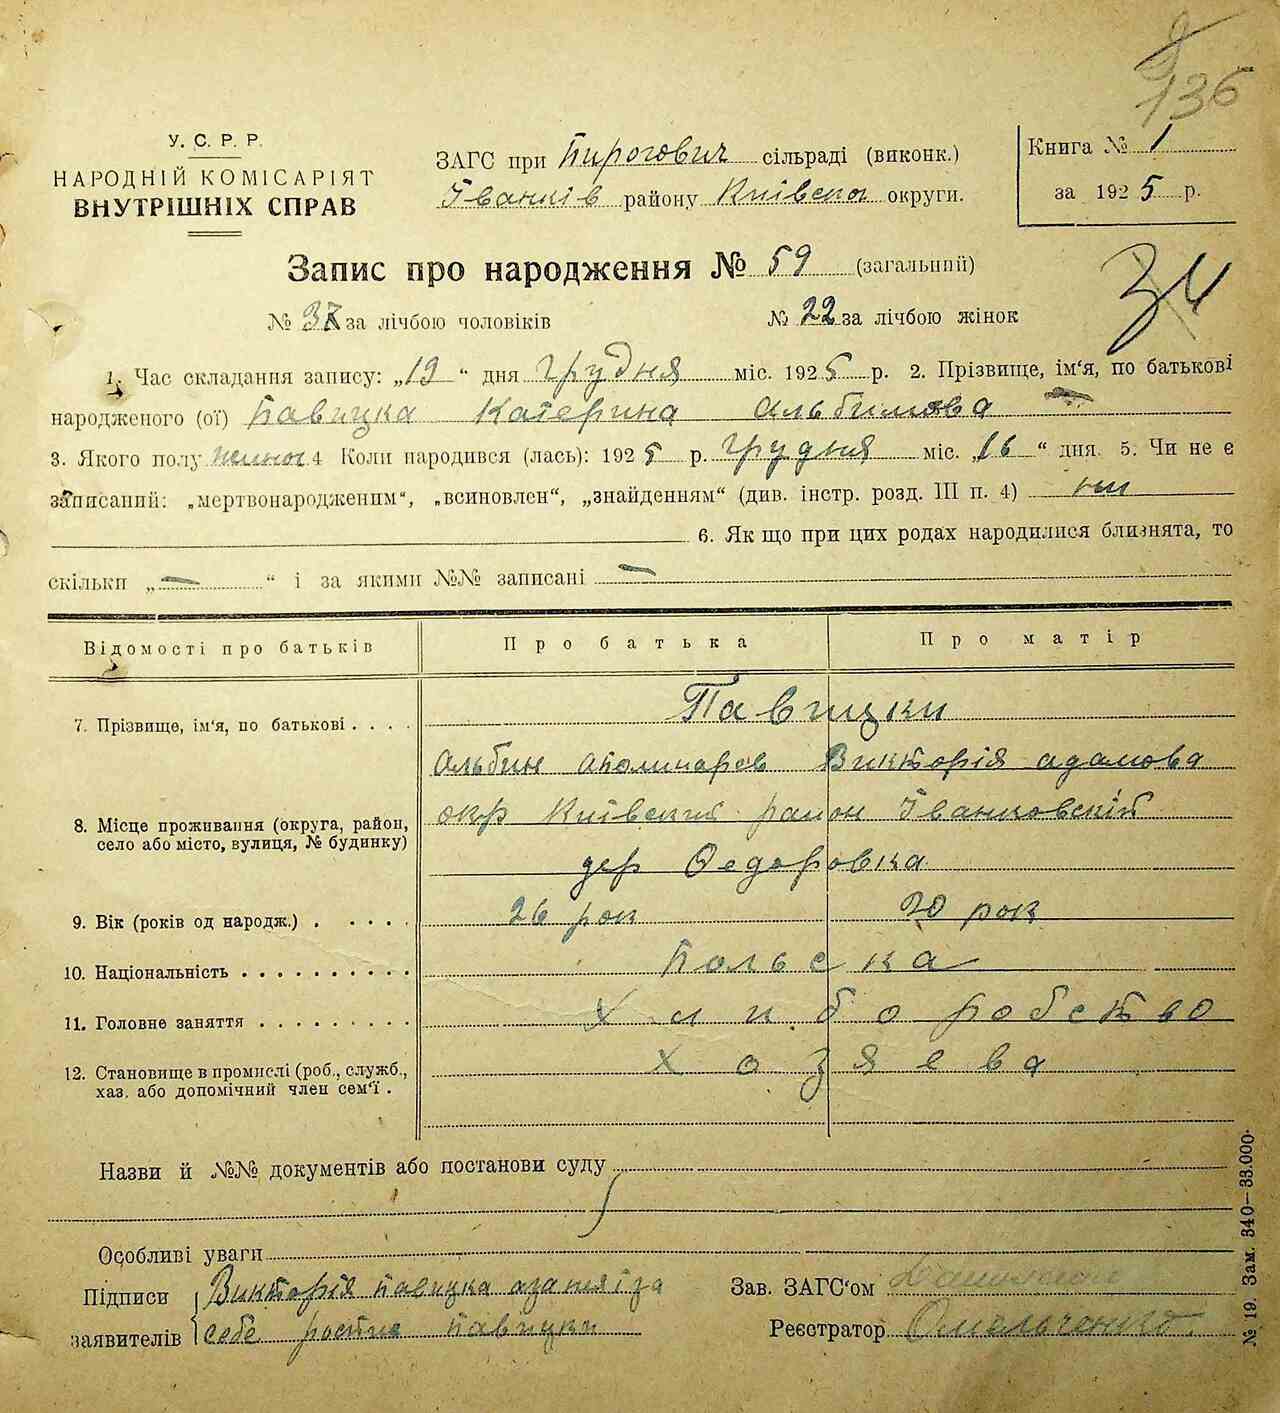 136
У. С. Р. Р.
НАРОДНІЙ КОМІСАРІЯТ
ВНУТРІШНІХ СПРАВ
ЗАГС при Пирогович сільраді (виконк.)
Іванків району Київской округи.
Книга № 1
за 1925 р.
Запис про народження № 59 (загальний)
34
№ 37 за лічбою чоловіків № 22 за лічбою жінок
1. Час складання запису: „19“ дня грудня міс. 1925 р. 2. Прізвище, ім‘я, по батькові
народженого (ої) Павицка Катерина Альбинова
3. Якого полу 4 Коли народився (лась): 1925 р. грудня міс. „16“ дня. 5. Чи не є
записаний: „мертвонародженим“, „всиновлен“, „знайденням“ (див. інстр. розд. III п. 4) ни
6. Як що при цих родах народилися близнята, то
скільки „—“ і за якими №№ записані —
Відомості про батьків Про батька Про матір
7. Прізвище, ім‘я, по батькові . . . . Павицки
Альбин Аполинаров Викторія адамова
8. Місце проживання (округа, район,
село або місто, вулиця, № будинку)
окр Київский район Іванковский
дер Федоровка
9. Вік (років од народж.) . . . . . 26 рок 20 рок
10. Національність . . . . . . . . . . Польска
11. Головне заняття . . . . . . . . . Хлиборобство
12. Становище в промислі (роб., служб.,
хаз. або допомічний член сем‘ї . хозяева
Назви й №№ документів або постанови суду
Особливі уваги
Підписи
заявителів
Викторія Павицка аза
себе Павицки
Зав. ЗАГС‘ом
Реєстратор Омельченко
№ 19. Зам. 340—33.000.